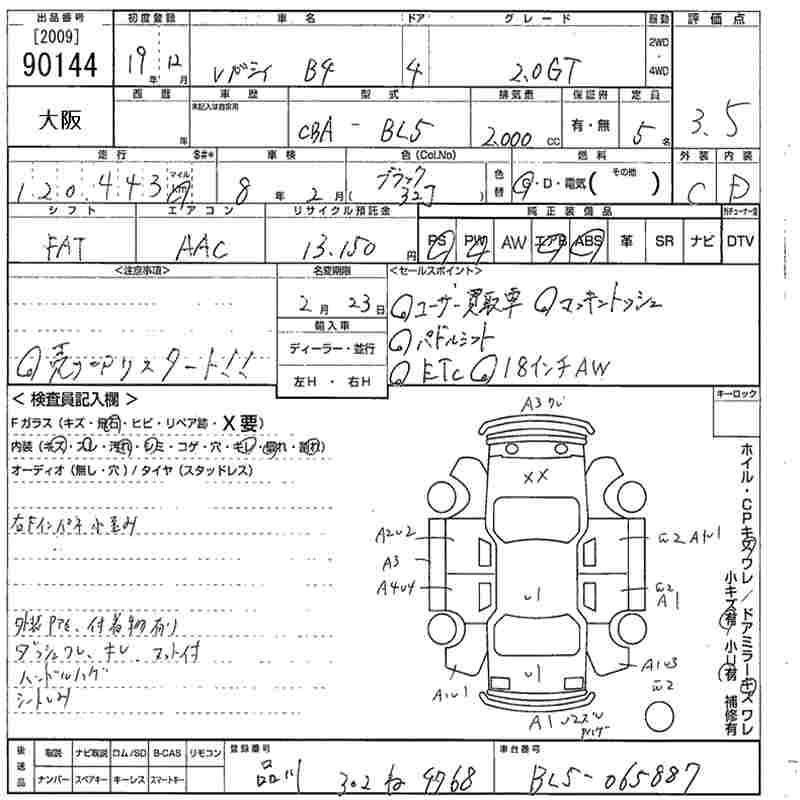 出品番号 初度登録 車名 ドア グレード 駆動 評価点
[2009]
90144 19年 12月 レガシィ B4 4 2.0GT 2WD・4WD 3.5
大阪 西暦 年 車歴 未記入は自家用 型式 CBA - BL5 排気量 2,000cc 保証書 有・無 定員 5名
走行 $#* 車検 色(Col.No) 色替 燃料 外装 内装
120,443 マイル km 8年 2月 ブラック (32J) G・D・電気(その他) C D
シフト エアコン リサイクル預託金 純正装備品
FAT AAC 13,150円 PS PW AW エアB ABS 革 SR ナビ DTV
<注意事項> 名変期限 <セールスポイント>
2月 23日
◎ユーザー買取車 ◎マッキントッシュ
輸入車
◎パドルシフト
ディーラー・並行
◎売切スタート!!
左H・右H
◎ETC ◎18インチAW
キーロック
<検査員記入欄>
Fガラス(キズ・飛石・ヒビ・リペア跡・X要)
内装(キズ・スレ・汚れ・シミ・コゲ・穴・キレ・割れ・剥れ)
オーディオ(無し・穴)/タイヤ(スタッドレス)
右Fインパネ小歪み
外装 付着物有り
ダッシュワレ、キレ、マット付
ハンドルハゲ
シートしみ
A3 ワレ
XX
A2U2
A3
A4U4
A1U1
U1
U1
A1U1
A1
A1U3
A1
ホイル・CPキズワレ/ドアミラーキズワレ
小キズ(有)/小U(有) 補修有
後送品 取説 ナビ取説 ロム/SD B-CAS リモコン
ナンバー スペアキー キーレス スマートキー
登録番号 品川 302 ね 4768
車台番号 BL5-065887